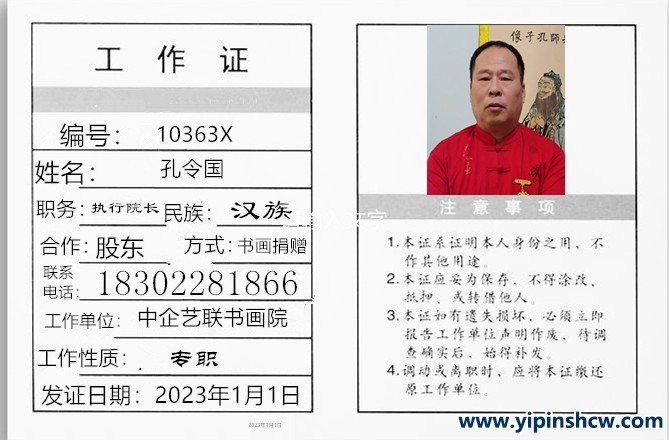 工作证
编号： 10363X
姓名： 孔令国
职务： 执行院长 民族： 汉族
合作： 股东 方式： 书画捐赠
联系
电话： 18302281866
工作单位： 中企艺联书画院
工作性质： 专职
发证日期： 2023年1月1日
2023年1月1日
注意事项
1.本证系证明本人身份之用，不
作其他用途。
2.本证应妥为保存，不得涂改、
抵押、或转借他人。
3.本证如有遗失损坏，必须立即
报告工作单位声明作废，待调
查确实后，始得补发。
4.调动或离职时，应将本证缴还
原工作单位。
www.yipinshcw.com